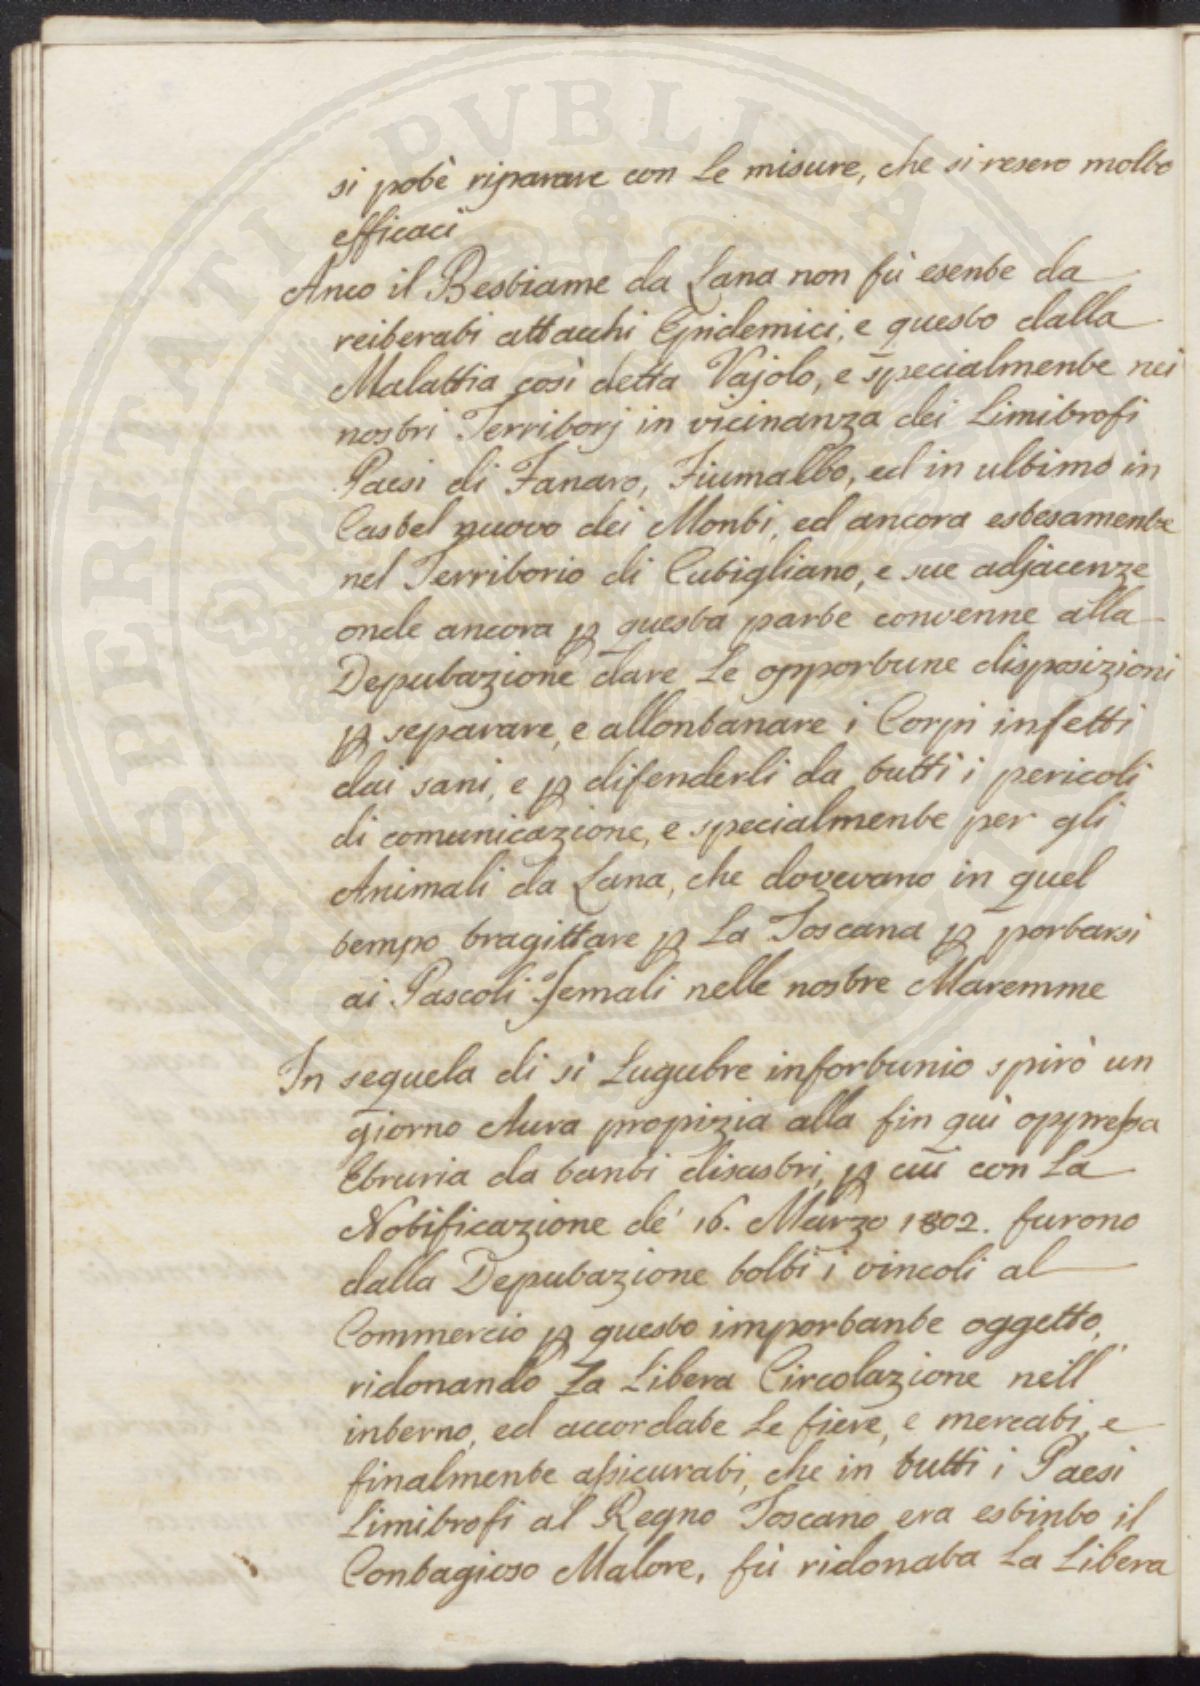 si potè riparare con le misure, che si resero molto
efficaci
Anco il Bestiame da Lana non fù esente da
reiterati attacchi Epidemici, e questo dalla
Malattia così detta Vajolo, e specialmente nei
nostri Territorj in vicinanza dei Limitrofi
Paesi di Fanano, Fiumalbo, ed in ultimo in
Castel nuovo dei Monti, ed ancora estesamente
nel Territorio di Cutigliano, e sue adjacenze
onde ancora ꝑ questa parte convenne alla
Deputazione dare le opportune disposizioni
ꝑ separare, e allontanare i Corpi infetti
dai sani, e ꝑ difenderli da tutti i pericoli
di comunicazione, e specialmente per gli
Animali da Lana, che dovevano in quel
tempo tragittare ꝑ la Toscana ꝑ portarsi
ai Pascoli Jemali nelle nostre Maremme
In sequela di sì Lugubre infortunio spirò un
giorno Aura propizia alla fin quì oppressa
Etruria da tanti disastri, ꝑ cui con la
Notificazione de' 16. Marzo 1802. furono
dalla Deputazione tolti i vincoli al
Commercio ꝑ questo importante oggetto,
ridonando la Libera Circolazione nell'
interno, ed accordate le fiere, e mercati, e
finalmente assicurati, che in tutti i Paesi
Limitrofi al Regno Toscano era estinto il
Contagioso Malore, fù ridonata la Libera
PROSPERITATI PVBLICAE